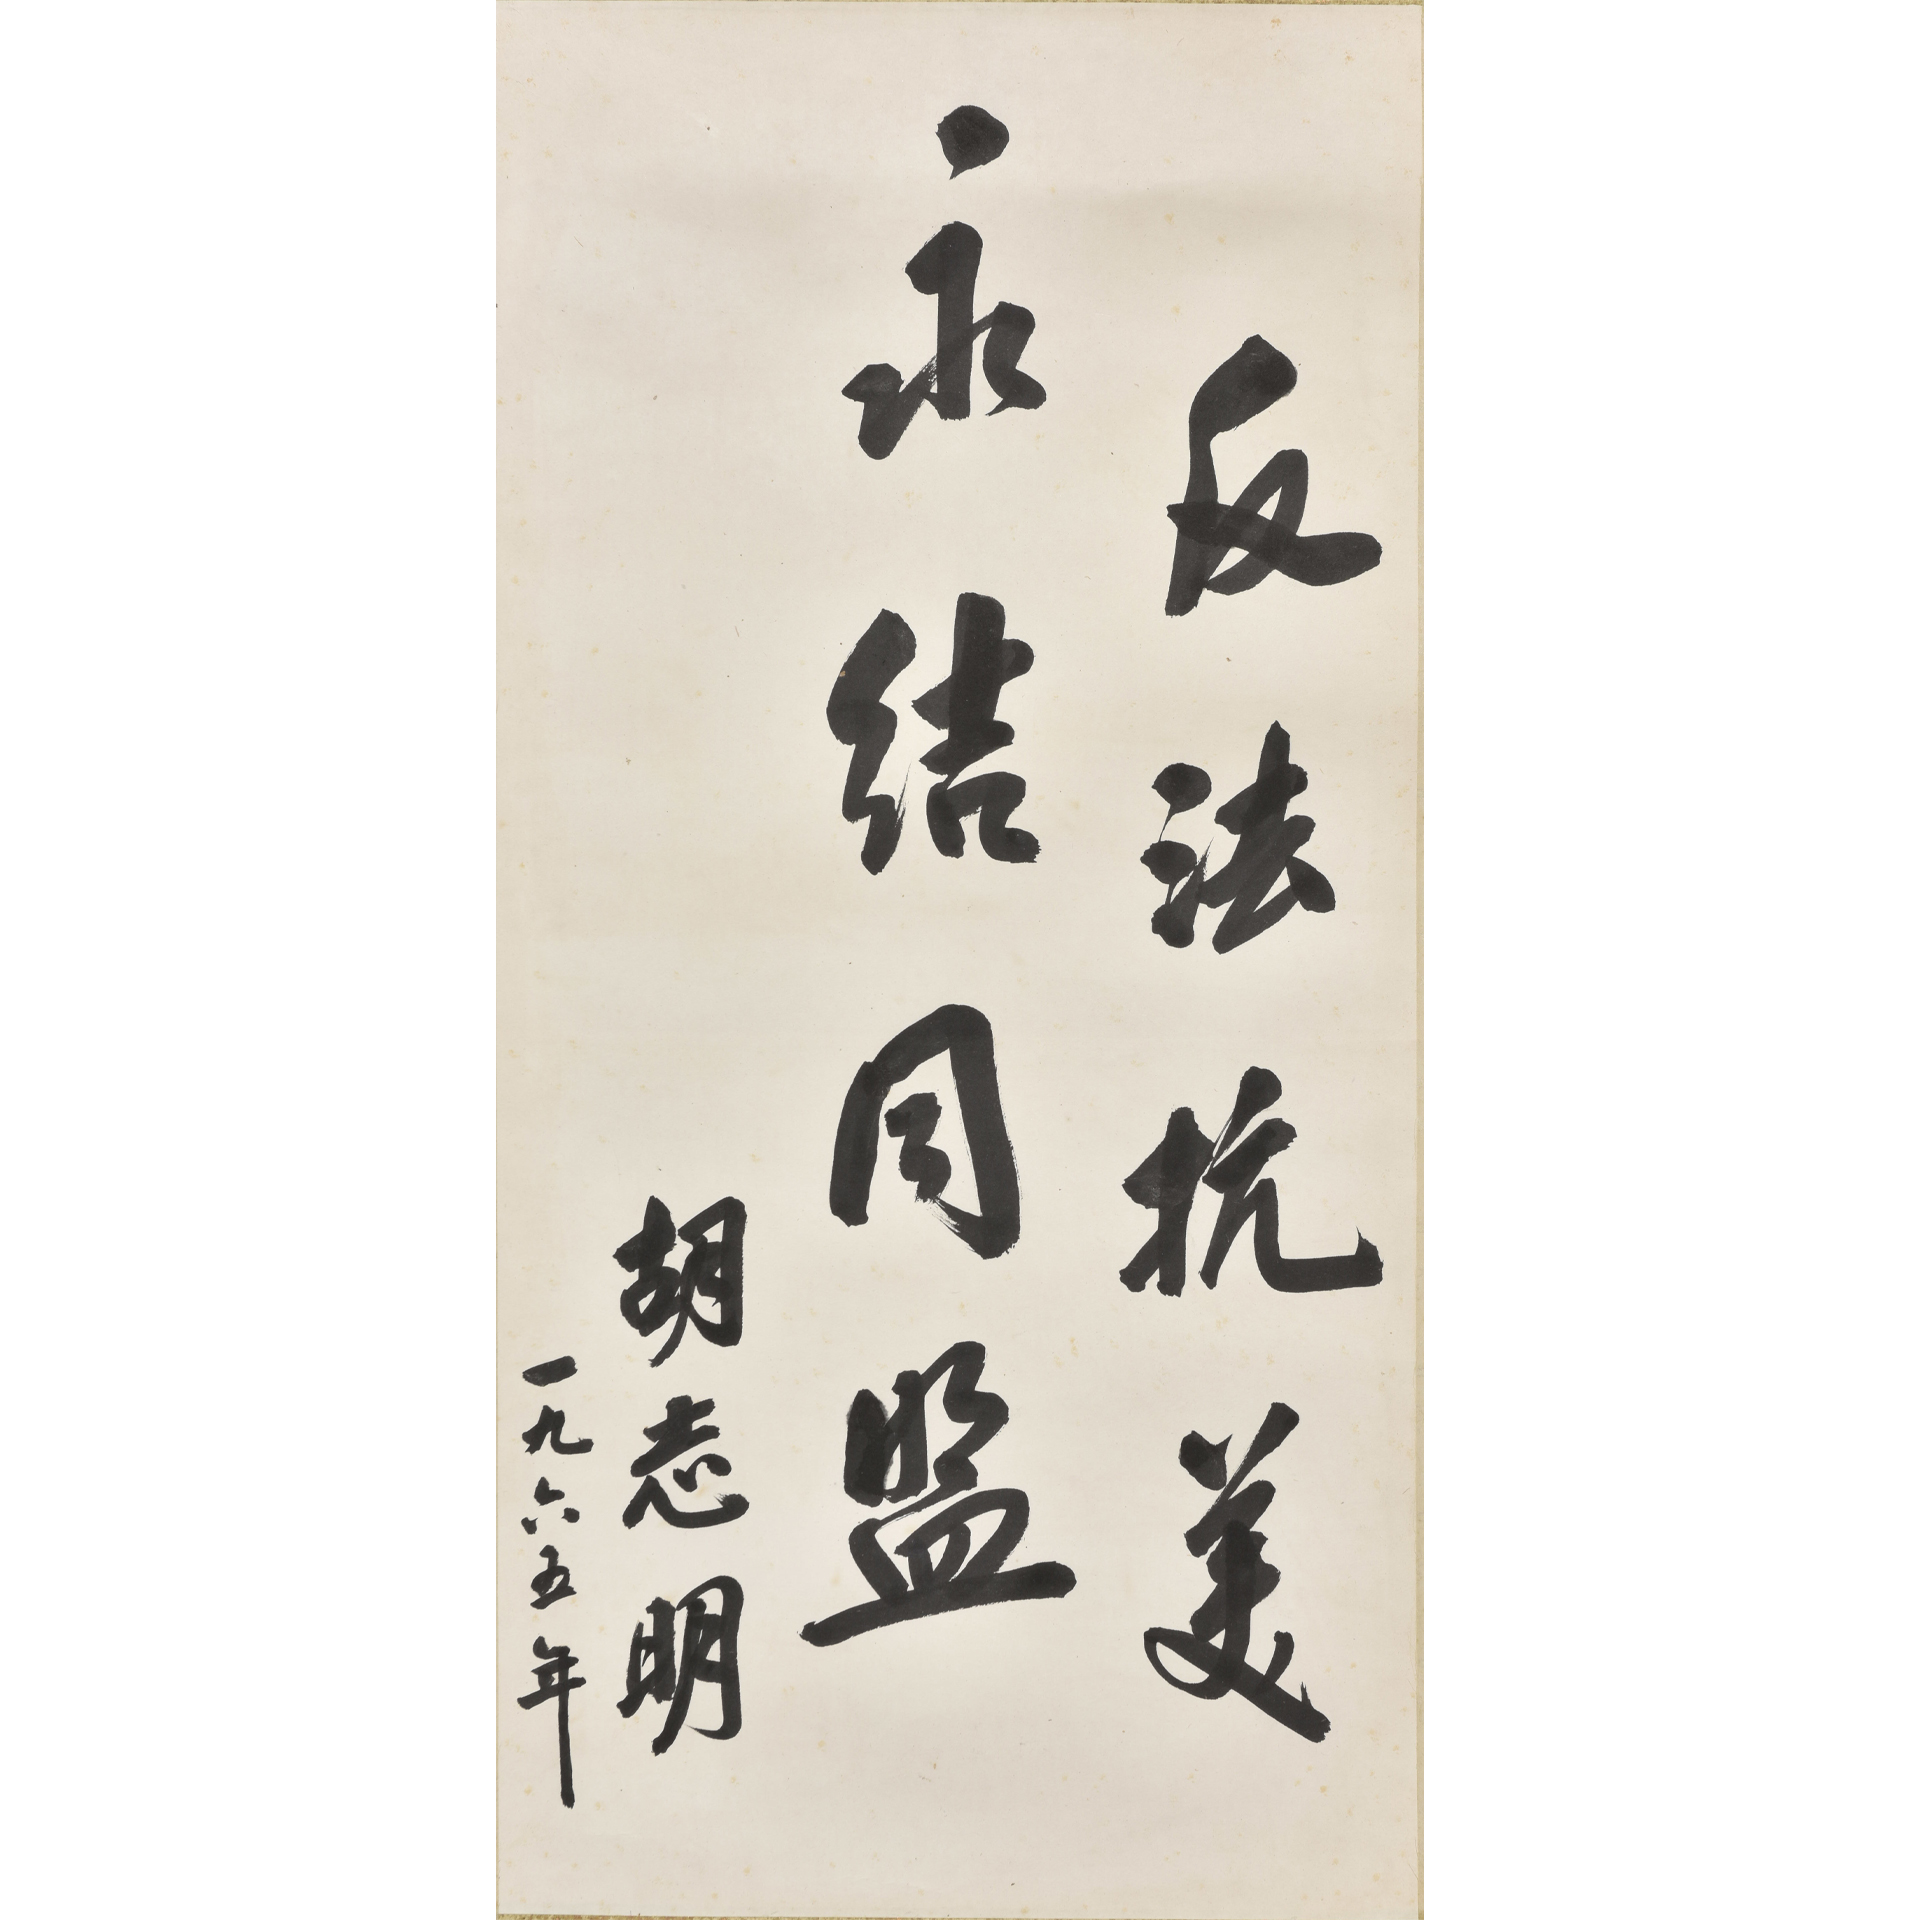 反法抗美
永结同盟
胡志明
一九六五年